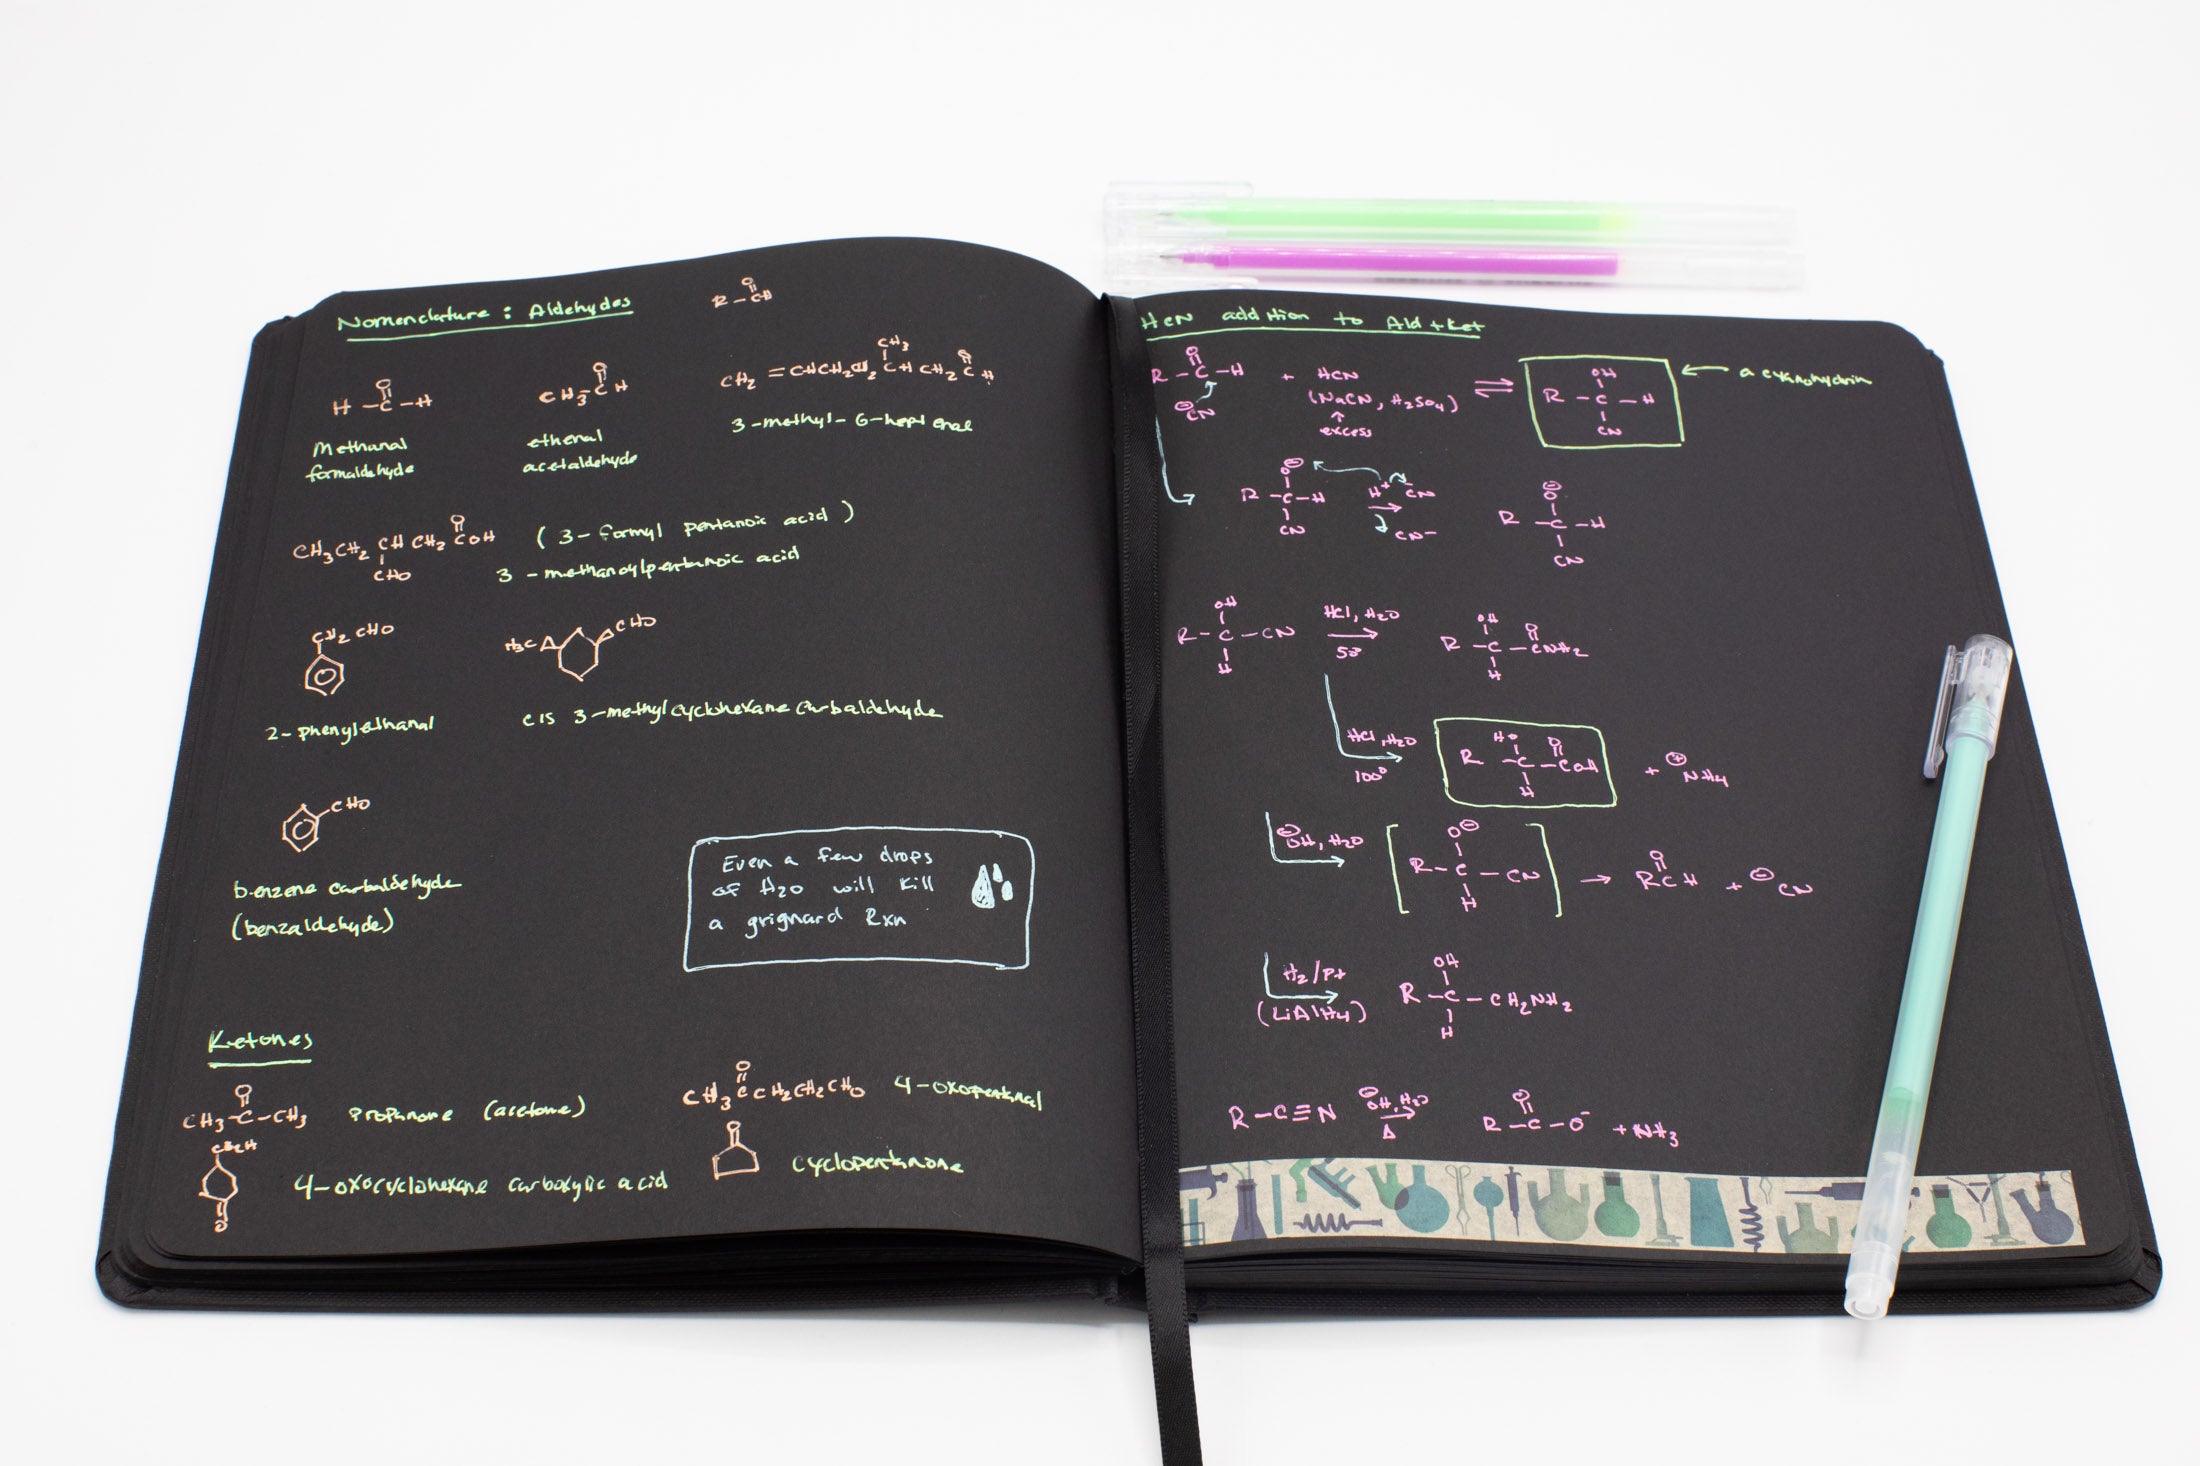 Nomenclature : Aldehydes
O
R - CH
O
H - C - H
O
CH3 C H
CH3
O
CH2 = CHCH2CH2 CH CH2 C H
Methanal
formaldehyde
ethenal
acetaldehyde
3-methyl-6-heptenal
O
CH3CH2 CH CH2 COH
CHO
( 3-formyl pentanoic acid )
3 - methanoylpentanoic acid
CH2 CHO
H3C
CHO
2-phenylethanal
cis 3-methylcyclohexane carbaldehyde
CHO
benzene carbaldehyde
(benzaldehyde)
Even a few drops
of H2O will kill
a grignard Rxn
Ketones
O
CH3-C-CH3
Propanone (acetone)
O
CH3 C CH2CH2CHO
4-oxopentanal
O
4-oxocyclohexane carboxylic acid
O
cyclopentanone
HCN addition to Ald + Ket
O
R - C - H
⊖CN
+ HCN
(NaCN, H2SO4)
↑
excess
⇌
OH
R - C - H
CN
← a cyanohydrin
O⊖
R - C - H
CN
H+ -CN
→
CN-
⊖
O
R - C - H
CN
OH
R - C - CN
H
HCl, H2O
→
50°
OH O
R - C - CNH2
H
HCl, H2O
100°
HO O
R - C - COH
H
+ ⊕NH4
⊖OH, H2O
O⊖
R - C - CN
H
→
O
RCH
+ ⊖CN
H2/Pt
(LiAlH4)
OH
R - C - CH2NH2
H
R - C≡N
⊖OH, H2O
→
Δ
O
R - C - O-
+ NH3